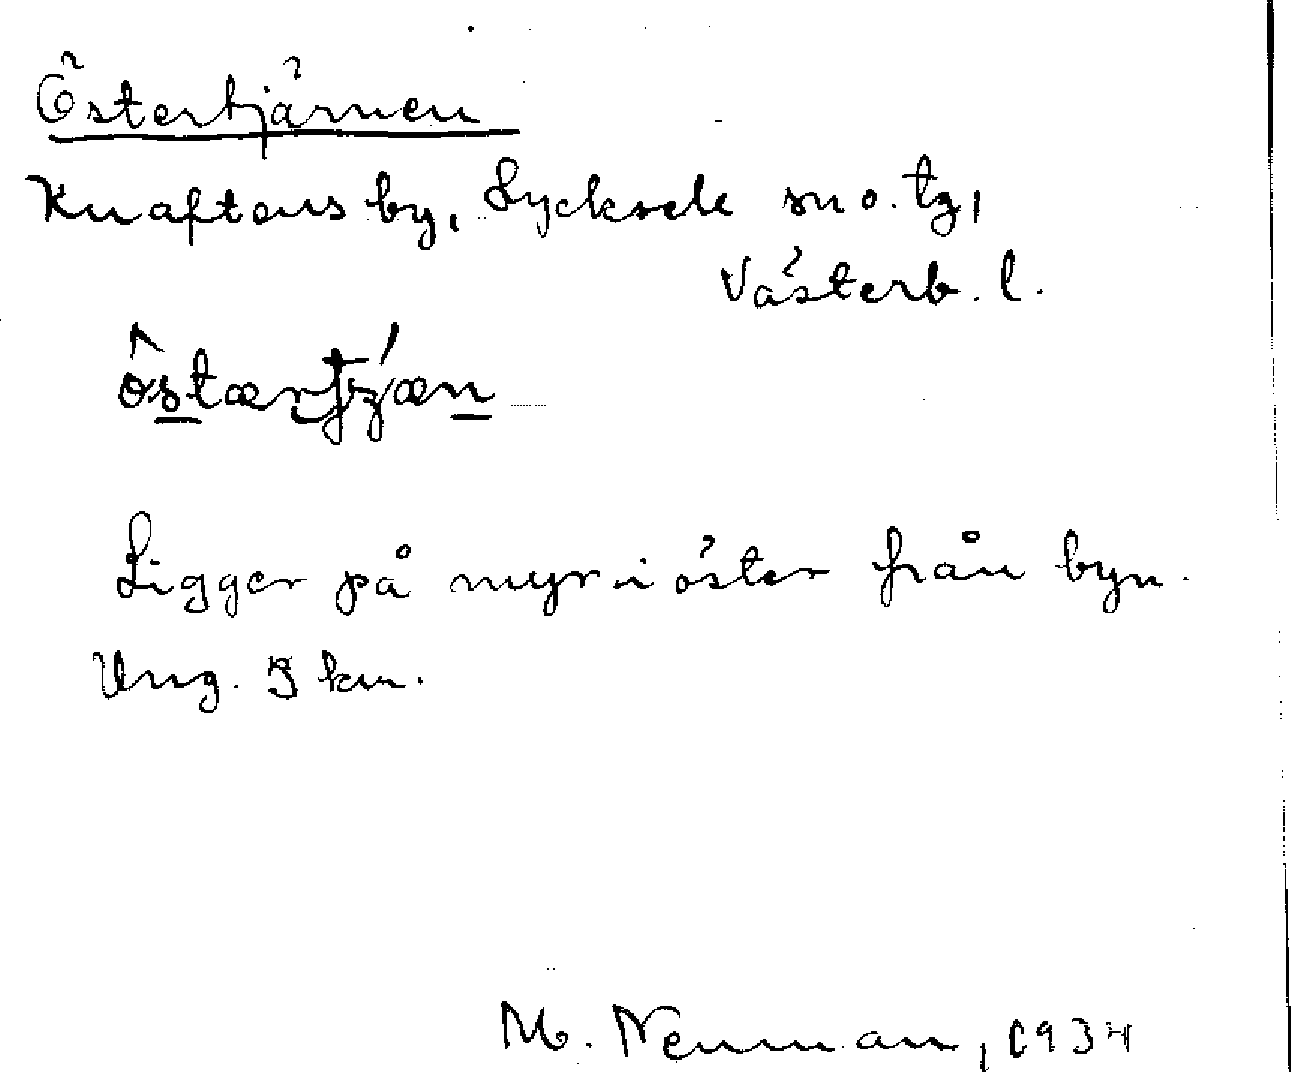 Östertjärnen
Knaftens by, Lycksele sn o. tg,
Västerb. l.
Ligger på myr i öster från byn.
Ung. 3 km.
M. Nenman, 1934